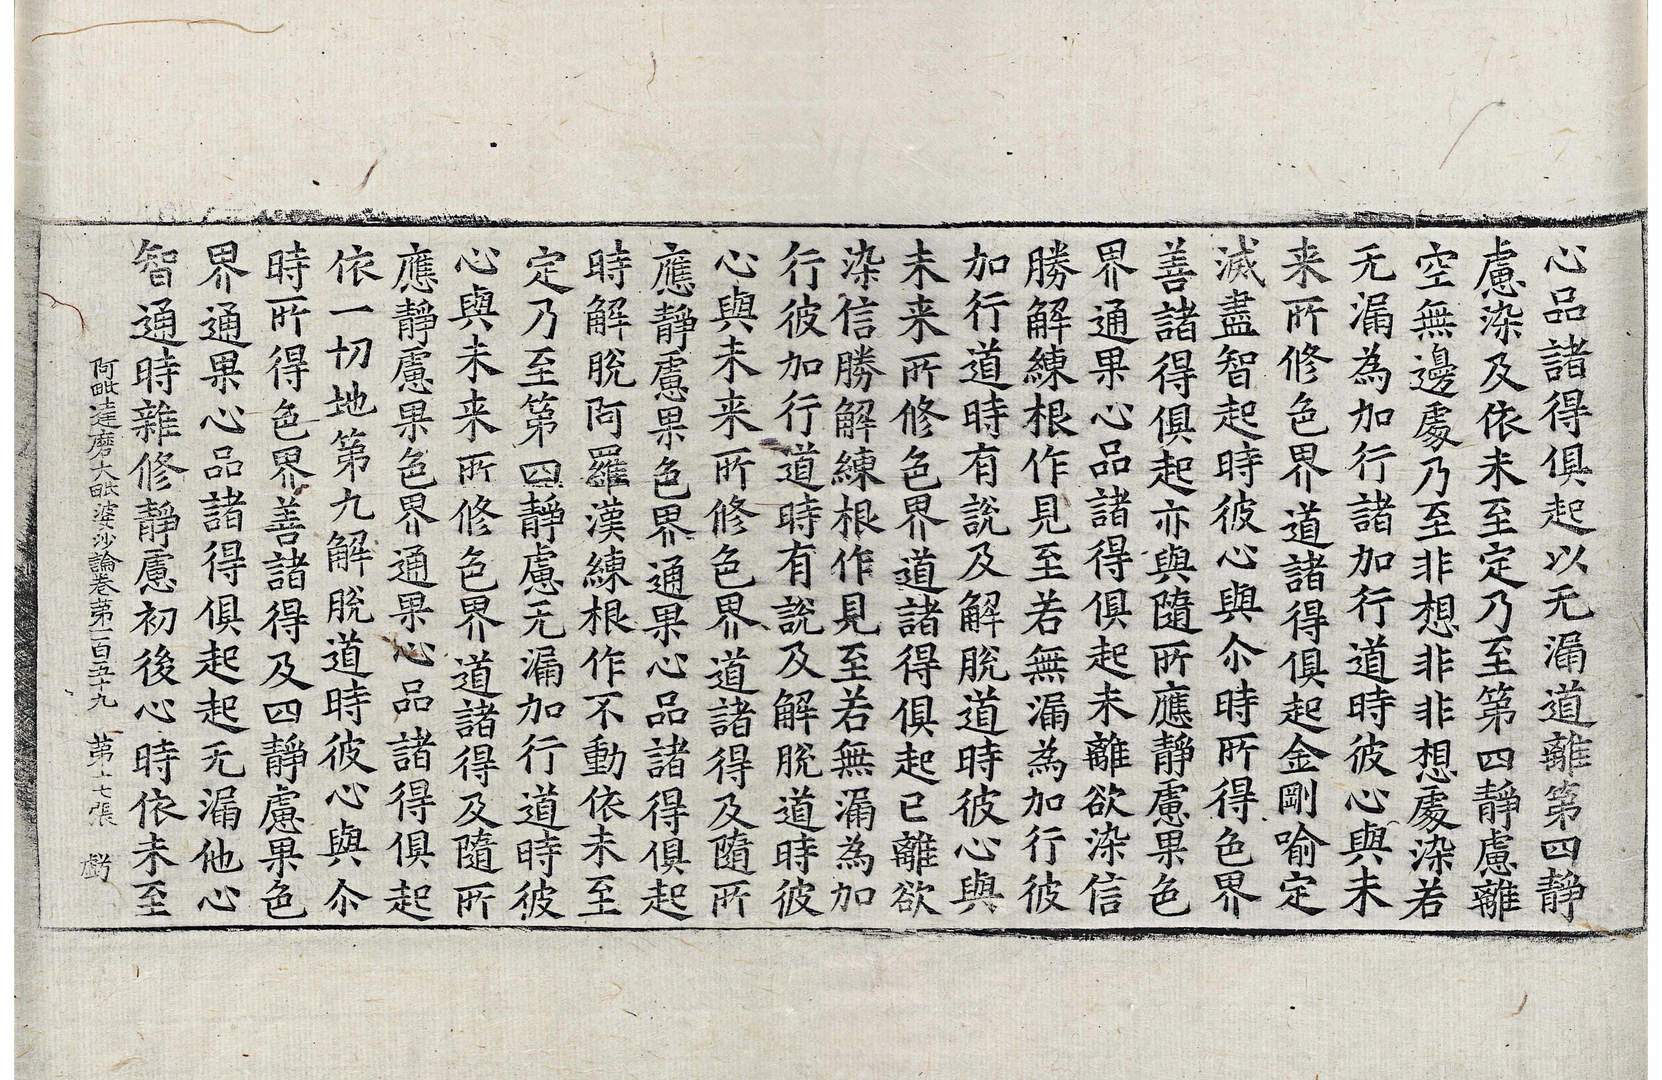 心品諸得俱起以无漏道離第四靜
慮染及依未至定乃至第四靜慮離
空無邊處乃至非想非非想處染若
无漏為加行諸加行道時彼心與未
来所修色界道諸得俱起金剛喻定
滅盡智起時彼心與尒時所得色界
善諸得俱起亦與隨所應靜慮果色
界通果心品諸得俱起未離欲染信
勝解練根作見至若無漏為加行彼
加行道時有說及解脫道時彼心與
未来所修色界道諸得俱起已離欲
染信勝解練根作見至若無漏為加
行彼加行道時有說及解脫道時彼
心與未来所修色界道諸得及隨所
應靜慮果色界通果心品諸得俱起
時解脫阿羅漢練根作不動依未至
定乃至第四靜慮无漏加行道時彼
心與未来所修色界道諸得及隨所
應靜慮果色界通果心品諸得俱起
依一切地第九解脫道時彼心與尒
時所得色界善諸得及四靜慮果色
界通果心品諸得俱起起无漏他心
智通時雜修靜慮初後心時依未至
阿毗達磨大毗婆沙論卷第一百五十九　第十七張